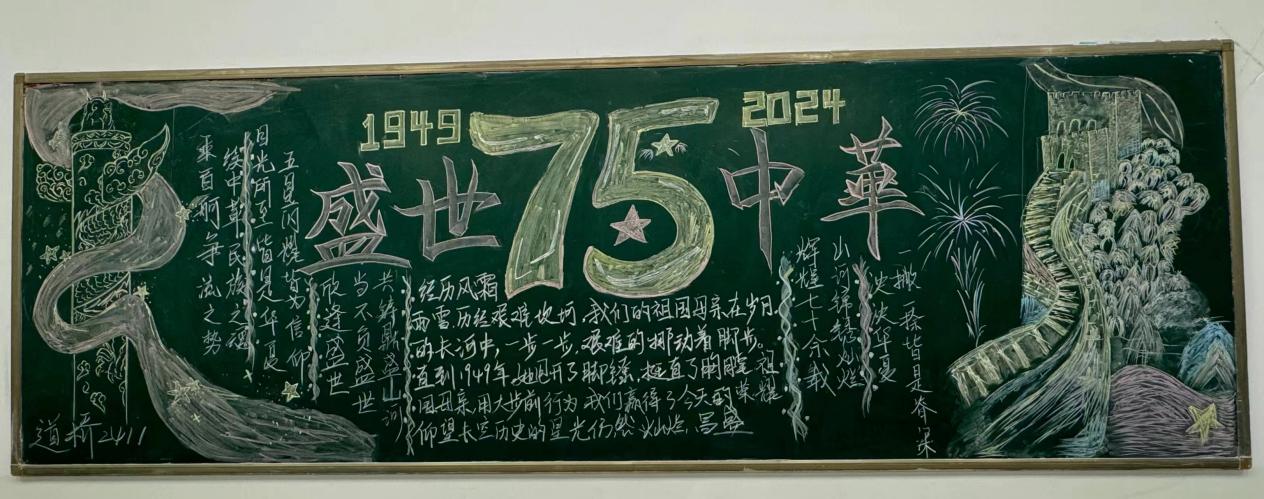 1949
75
2024
盛世
中華
五星闪耀皆为信仰
目光所至皆是华夏
续中華民族之魂
乘百舸争流之势
共铸鼎盛山河
当不负盛世
欣逢盛世
经历风霜
雨雪，历经艰难坎坷，我们的祖国母亲在岁月
的长河中，一步一步，艰难的挪动着脚步。
直到1949年，她甩开了脚镣，挺直了胸膛，祖
国母亲用大步前行为我们赢得了今天的荣耀
仰望长空历史的星光仍然灿烂，昌盛
一撇一捺皆是脊梁
史诗华夏
山河锦绣灿烂
辉煌七十余载
道桥2411